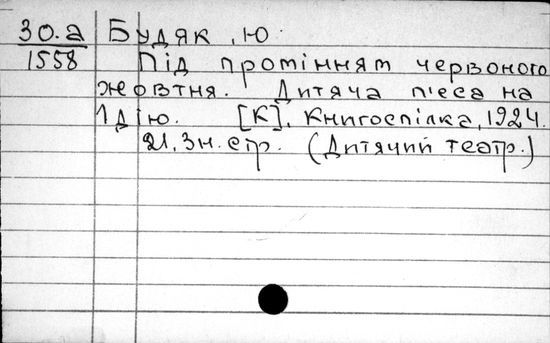 30.а Будяк, Ю.
1558 Під промінням червоного
жовтня. Дитяча п'єса на
1 дію. [К], Книгоспілка, 1924.
21, 3 н. стр. (Дитячий театр.)